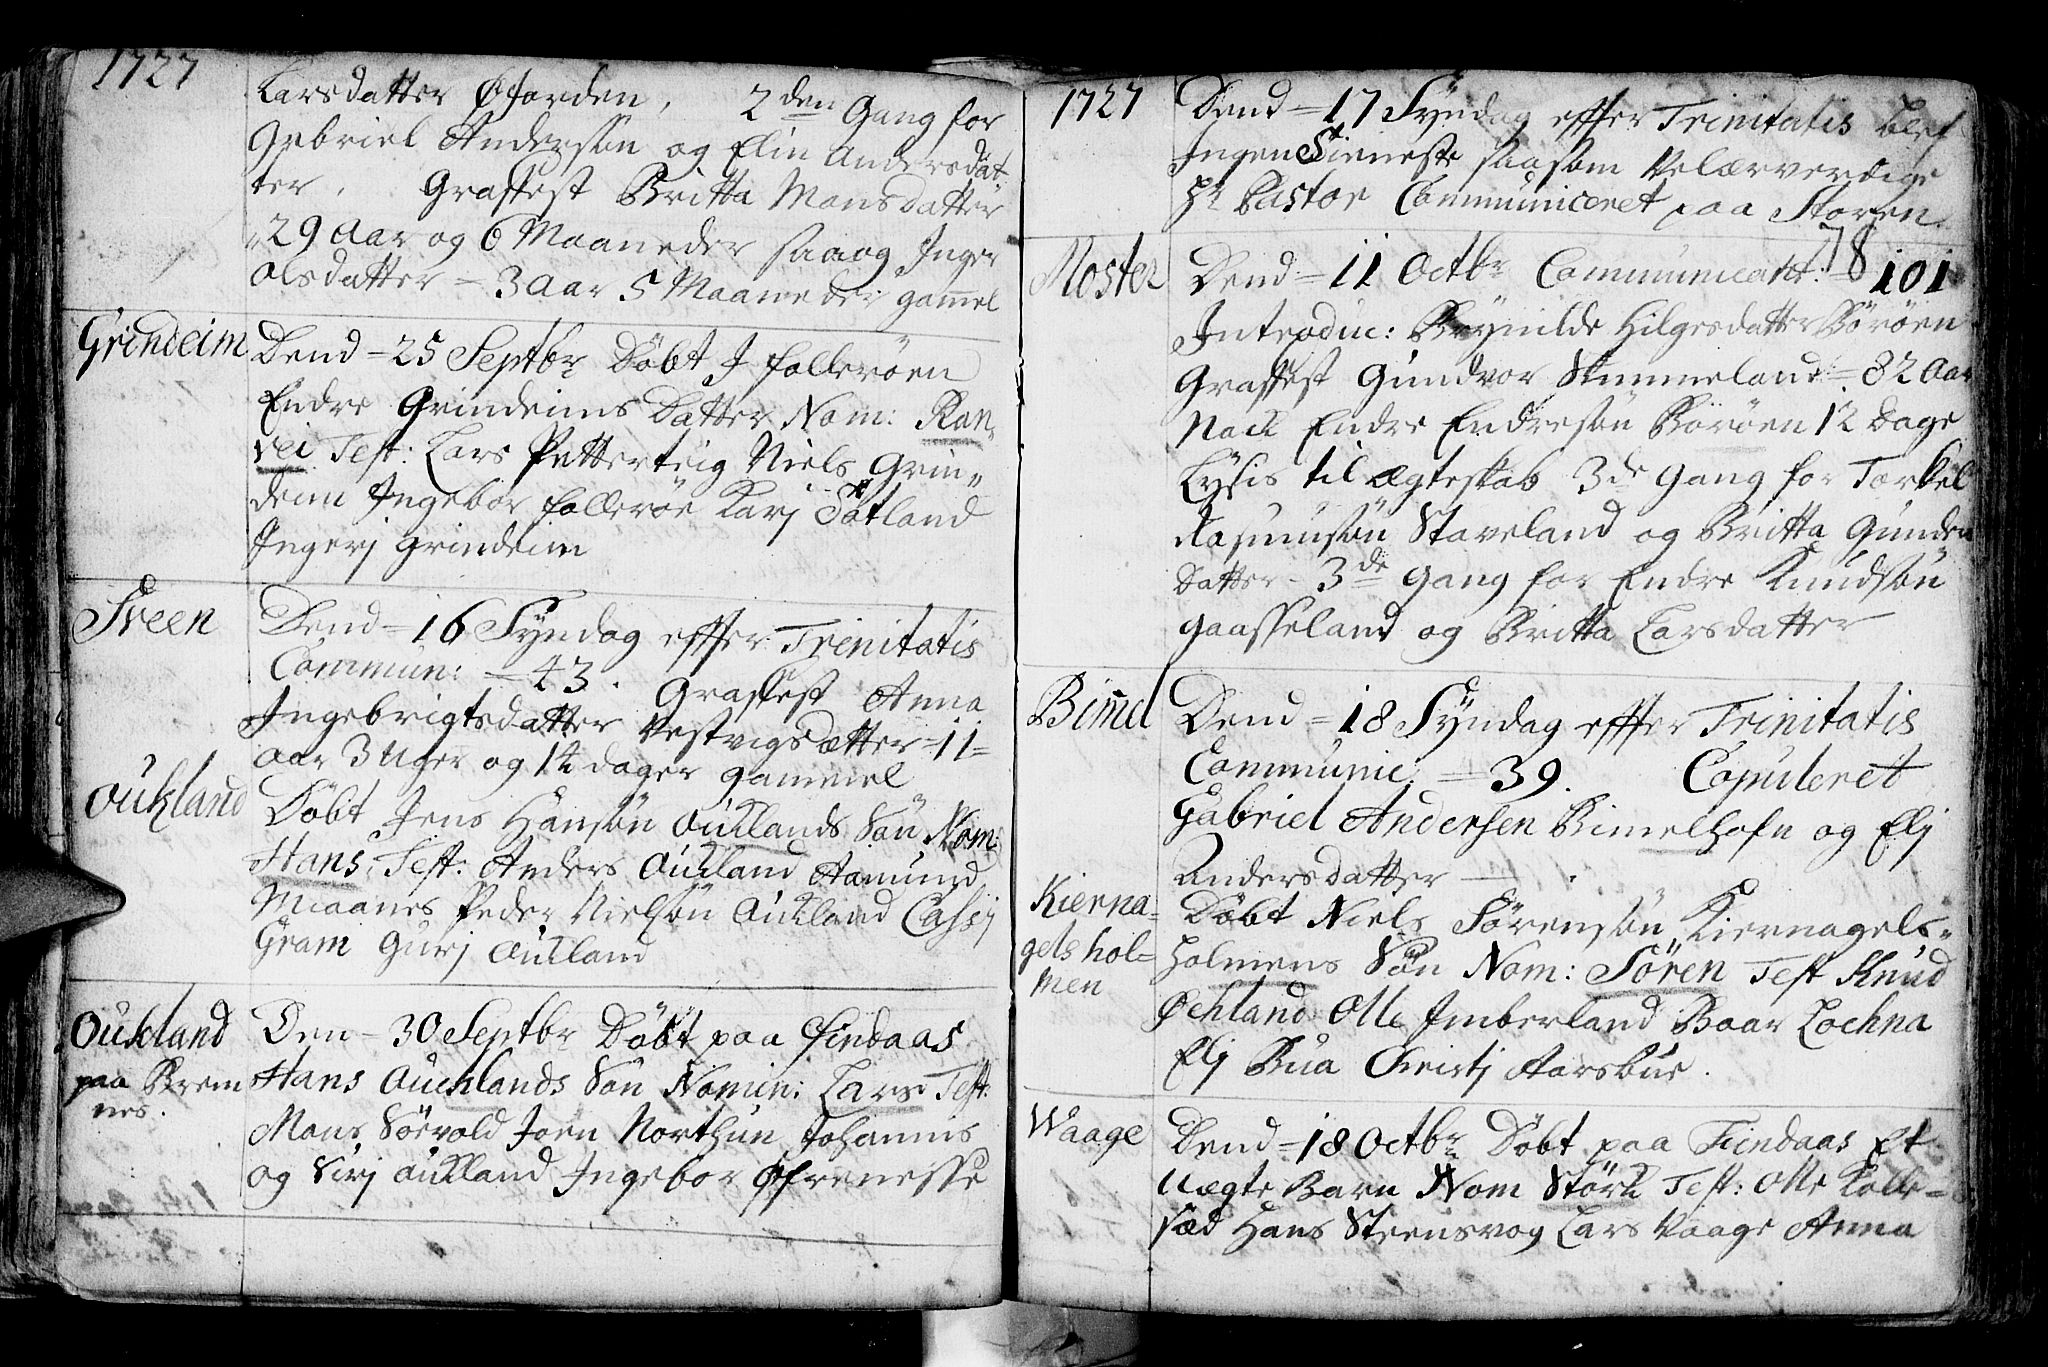 1727
Larsdatter Øfjorden, 2den Gang for
Gebriel Andersøn og Elin Andersdat-
ter. Graffest Britta Monsdatter
29 Aar og 6 Maaneder saa og Inger
Olsdatter = 3 Aar 5 Maaneder gammel
Grindeim
Dend = 25 Septbr Døbt J Follerøen
Endre Grindeims Datter Nom: Ran-
vei Test: Lars Petterteig Niels Grin-
deim Ingebor Follerøe Karj Totland
Ingerj Grindeim
Sveen
Dend = 16 Syndag effter Trinitatis
Commun: = 43. Graffest Anna
Ingebrigtsdatter Vestvigsætter = 11 =
Aar 3 Uger og 12 dager gammel
Oukland
Døbt Jens Hansøn Aucklands Søn Nom:
Hans, Test: Anders Auckland Aamund
Miaanes Peder Nielsøn Auckland Cassj
Gram Gurj Auckland
Oukland
paa Brem
nes.
Den = 30 Septbr Døbt paa Findaas
Hans Aucklands Søn Nomin: Lars Test:
Mons Sørvold Joen Northun Johannis
og Sirj Auckland Ingebor Øfrenesse
1727
Dend = 17 Syndag effter Trinitatis blef
Ingen Tieneste saasom Velærverdige
Hr Pastor Communiceret paa Storen
78
Moster
Dend = 11 Octbr Communicant: = 101
Introduc: Brynilde Hilgesdatter Børøen
Graffest Gundvor Stummeland = 82 Aar
Nock Endre Endresøn Børøen 12 Dage
Lysis til Ægteskab 3de Gang for Torkel
Rasmusøn Staveland og Britta Gunder
Datter - 3de Gang for Endre Knudsøn
Gaasseland og Britta Larsdatter
Bimel
Dend = 18 Syndag effter Trinitatis
Communic: = 39. Copuleret
Gabriel Andersen Bimelhofn og Elj
Andersdatter
Kierna-
gelshol-
men
Døbt Niels Sørensøn Kiernagels-
holmens Søn Nom: Søren Test Knud
Øchland Olle Imberland Baar Lochna
Elj Bua Christj Aarsbue.
Waage
Dend = 18 Octbr Døbt paa Findaas Et
Uægte Barn Nom Størk Test: Olle Kolle-
sæd Hans Steensvog Lars Vaage Anna